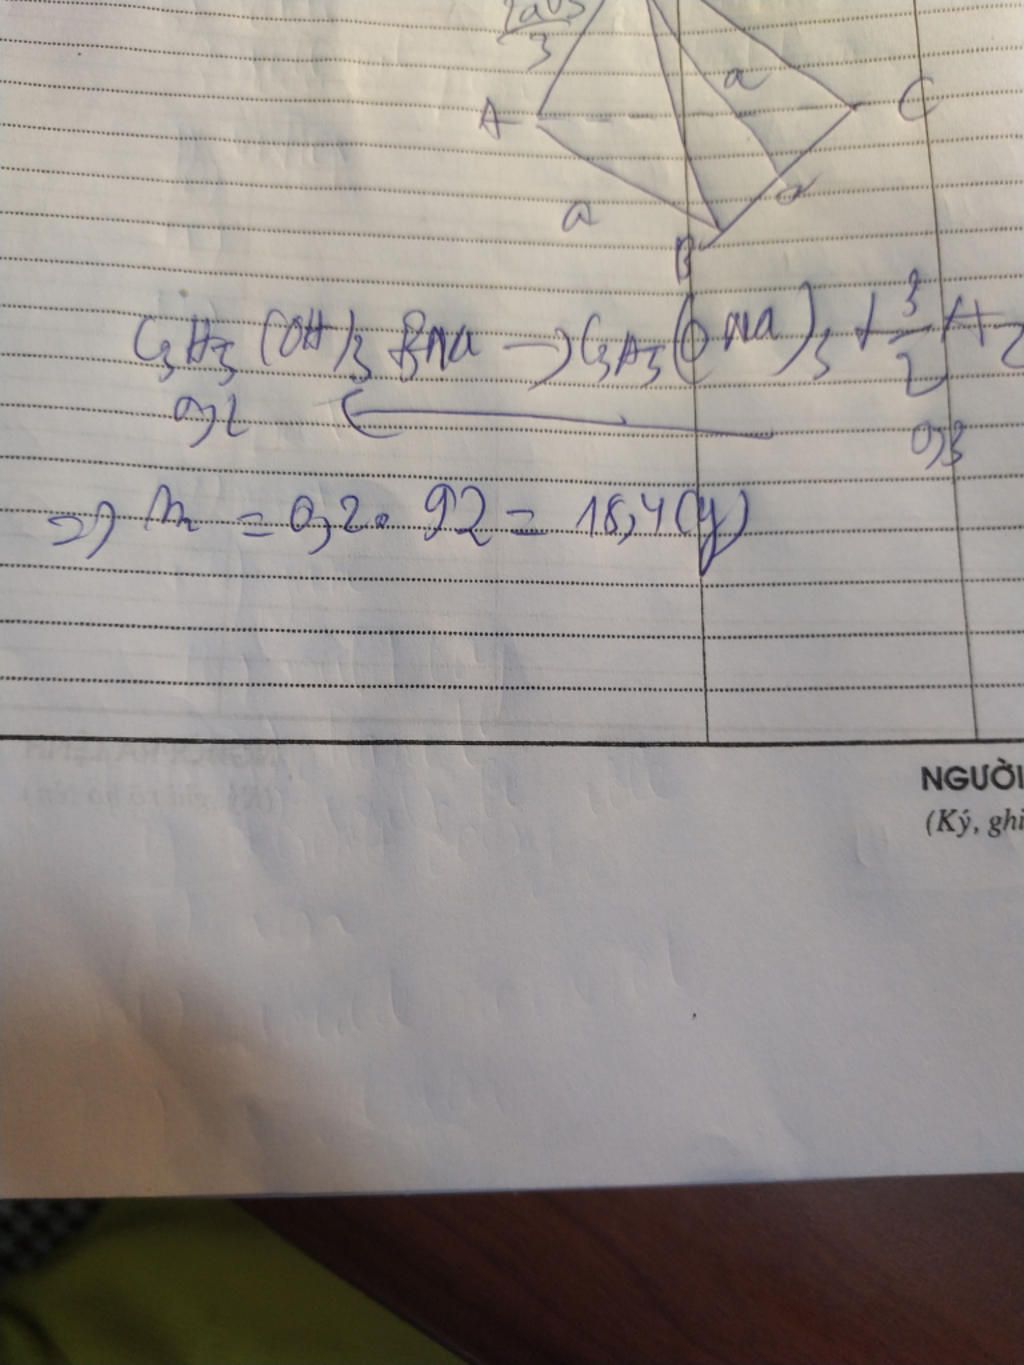 2a√3
3
a
A
C
a
a
B
C₃H₅(OH)₃ 3Na → C₃H₅(ONa)₃ + 3/2 H₂
0,2 ← 0,3
=> m = 0,2 . 92 = 18,4 (g)
NGƯỜI
(Ký, ghi